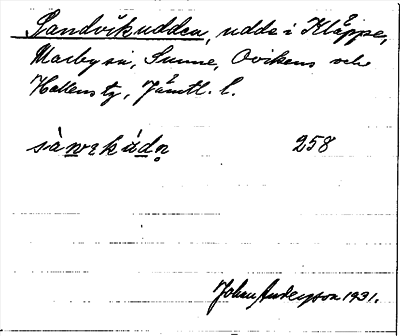 Sandvikudden, udde i Kläppe,
Marby sn, Sunne, Ovikens och
Hallens tg, Jämtl. l.
sànvkúdn̥ 258
Johan Anderson 1931.